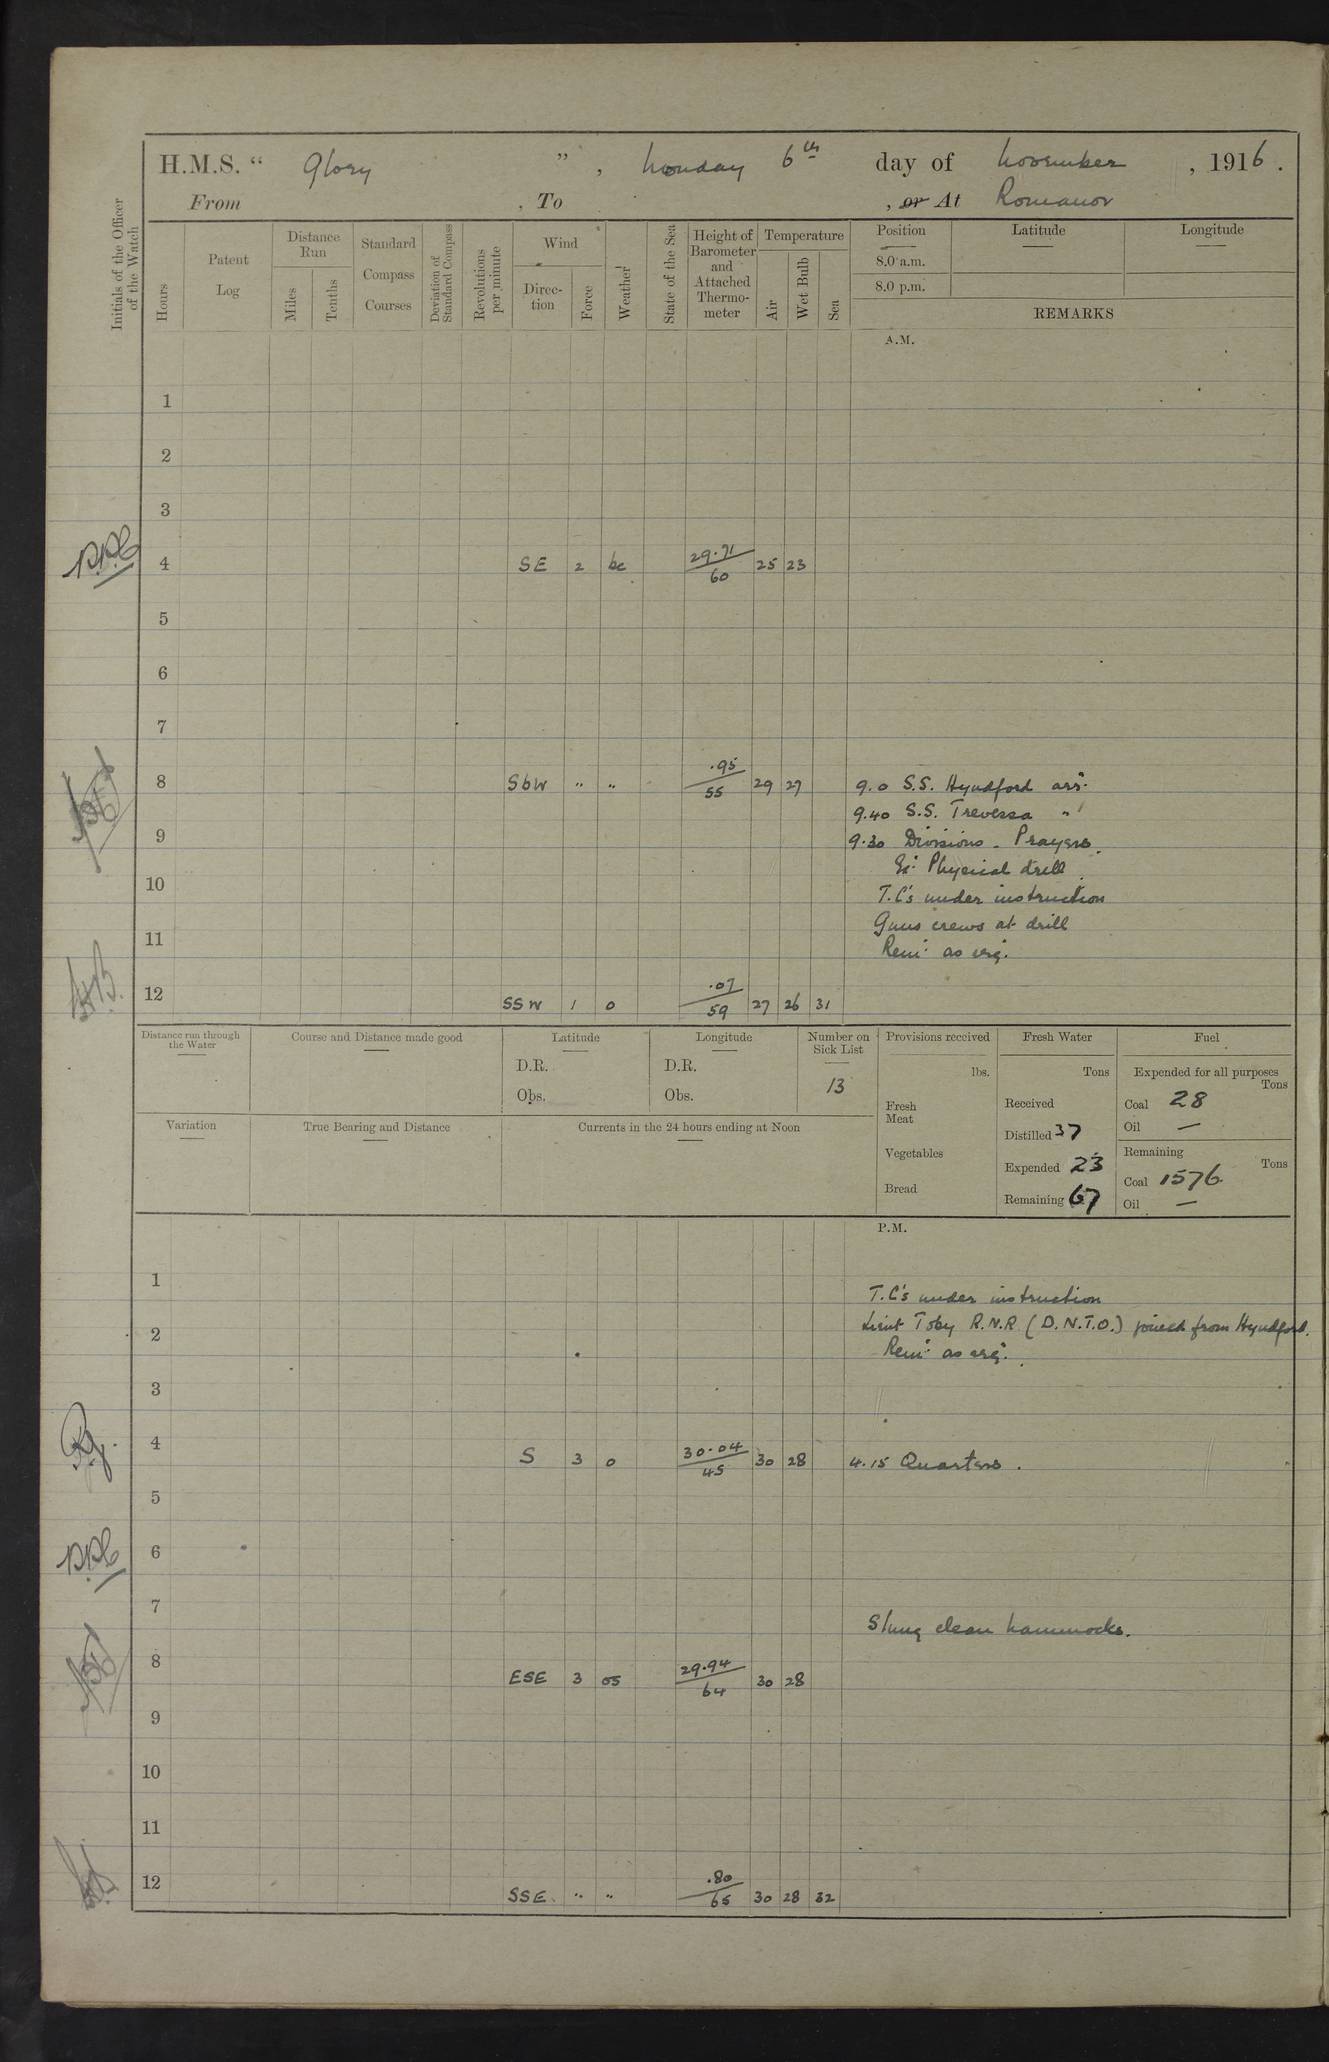 H.M.S. “ Glory ” , Monday 6th day of November , 1916 .
From , To , or At Romanov
Initials of the Officer of the Watch
Hours
Patent Log
Distance Run
Miles
Tenths
Standard Compass Courses
Deviation of Standard Compass
Revolutions per minute
Wind
Direc-tion
Force
Weather
State of the Sea
Height of Barometer and Attached Thermo-meter
Temperature
Air
Wet Bulb
Sea
Position
Latitude
Longitude
8.0 a.m.
8.0 p.m.
REMARKS
A.M.
1
2
3
4 SE 2 bc 29.71/60 25 23
5
6
7
8 SbW " " .95/55 29 27 9.0 S.S. Hyndford arrd.
9.40 S.S. Trevessa "
9 9.30 Divisions - Prayers.
Ex: Physical drill
10 T.C's under instruction
Guns crews at drill
11 Rem: as reqd.
12 SSW 1 o .07/59 27 26 31
Distance run through the Water
Course and Distance made good
Latitude
D.R.
Obs.
Longitude
D.R.
Obs.
Number on Sick List
13
Provisions received
lbs.
Fresh Meat
Vegetables
Bread
Fresh Water
Tons
Received
Distilled 37
Expended 23
Remaining 67
Fuel
Expended for all purposes
Tons
Coal 28
Oil —
Remaining
Tons
Coal 1576
Oil —
Variation
True Bearing and Distance
Currents in the 24 hours ending at Noon
P.M.
1 T.C's under instruction
2 Lieut Toby R.N.R (D.N.T.O.) joined from Hyndford.
Rem: as reqd.
3
4 S 3 o 30.04/45 30 28 4.15 Quarters.
5
6
7 Slung clean hammocks.
8 ESE 3 os 29.94/64 30 28
9
10
11
12 SSE " " .80/65 30 28 32